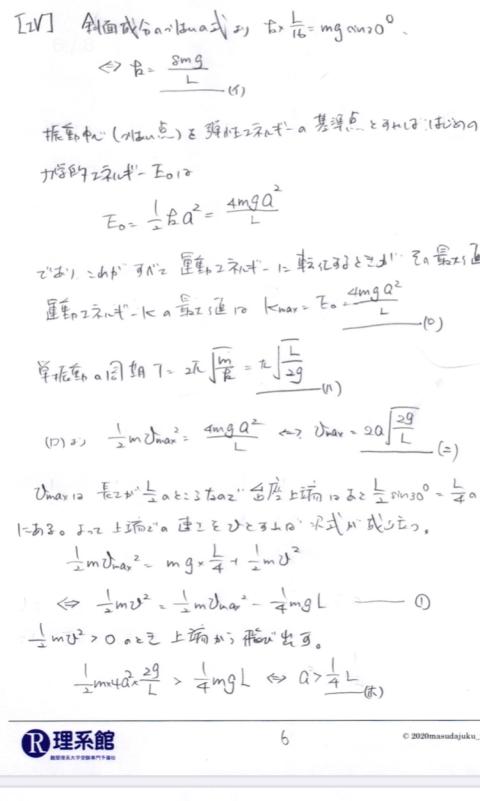 [IV] 斜面成分のつりあいの式より k×L/16=mg sin30°.
⇔ k= 8mg/L (イ)
振動中心(つりあい点)を弾性エネルギーの基準点とすれば はじめの
力学的エネルギーE₀は
E₀= 1/2 ka² = 4mga²/L
であり これがすべて運動エネルギーに転化するときが その最大値
運動エネルギーKの最大値は Kmax=E₀= 4mga²/L (ロ)
単振動の周期T=2π√(m/k)=π√(L/2g) (ハ)
(ロ)より 1/2 mVmax² = 4mga²/L ⇔ Vmax=2a√(2g/L) (ニ)
Vmaxは 長さがL/2のところなので 台座上端はあと L/2 sin30°= L/4 の
にある。よって上端での速さをひとすれば 次式が成り立つ。
1/2 mVmax² = mg× L/4 + 1/2 mV²
⇔ 1/2 mV² = 1/2 mVmax² − 1/4 mgL ①
1/2 mV² >0 のとき 上端から飛び出す。
1/2 m×4a²× 2g/L > 1/4 mgL ⇔ a> 1/4 L (ホ)
R 理系館
難関理系大学受験専門予備校
6
© 2020masudajuku_